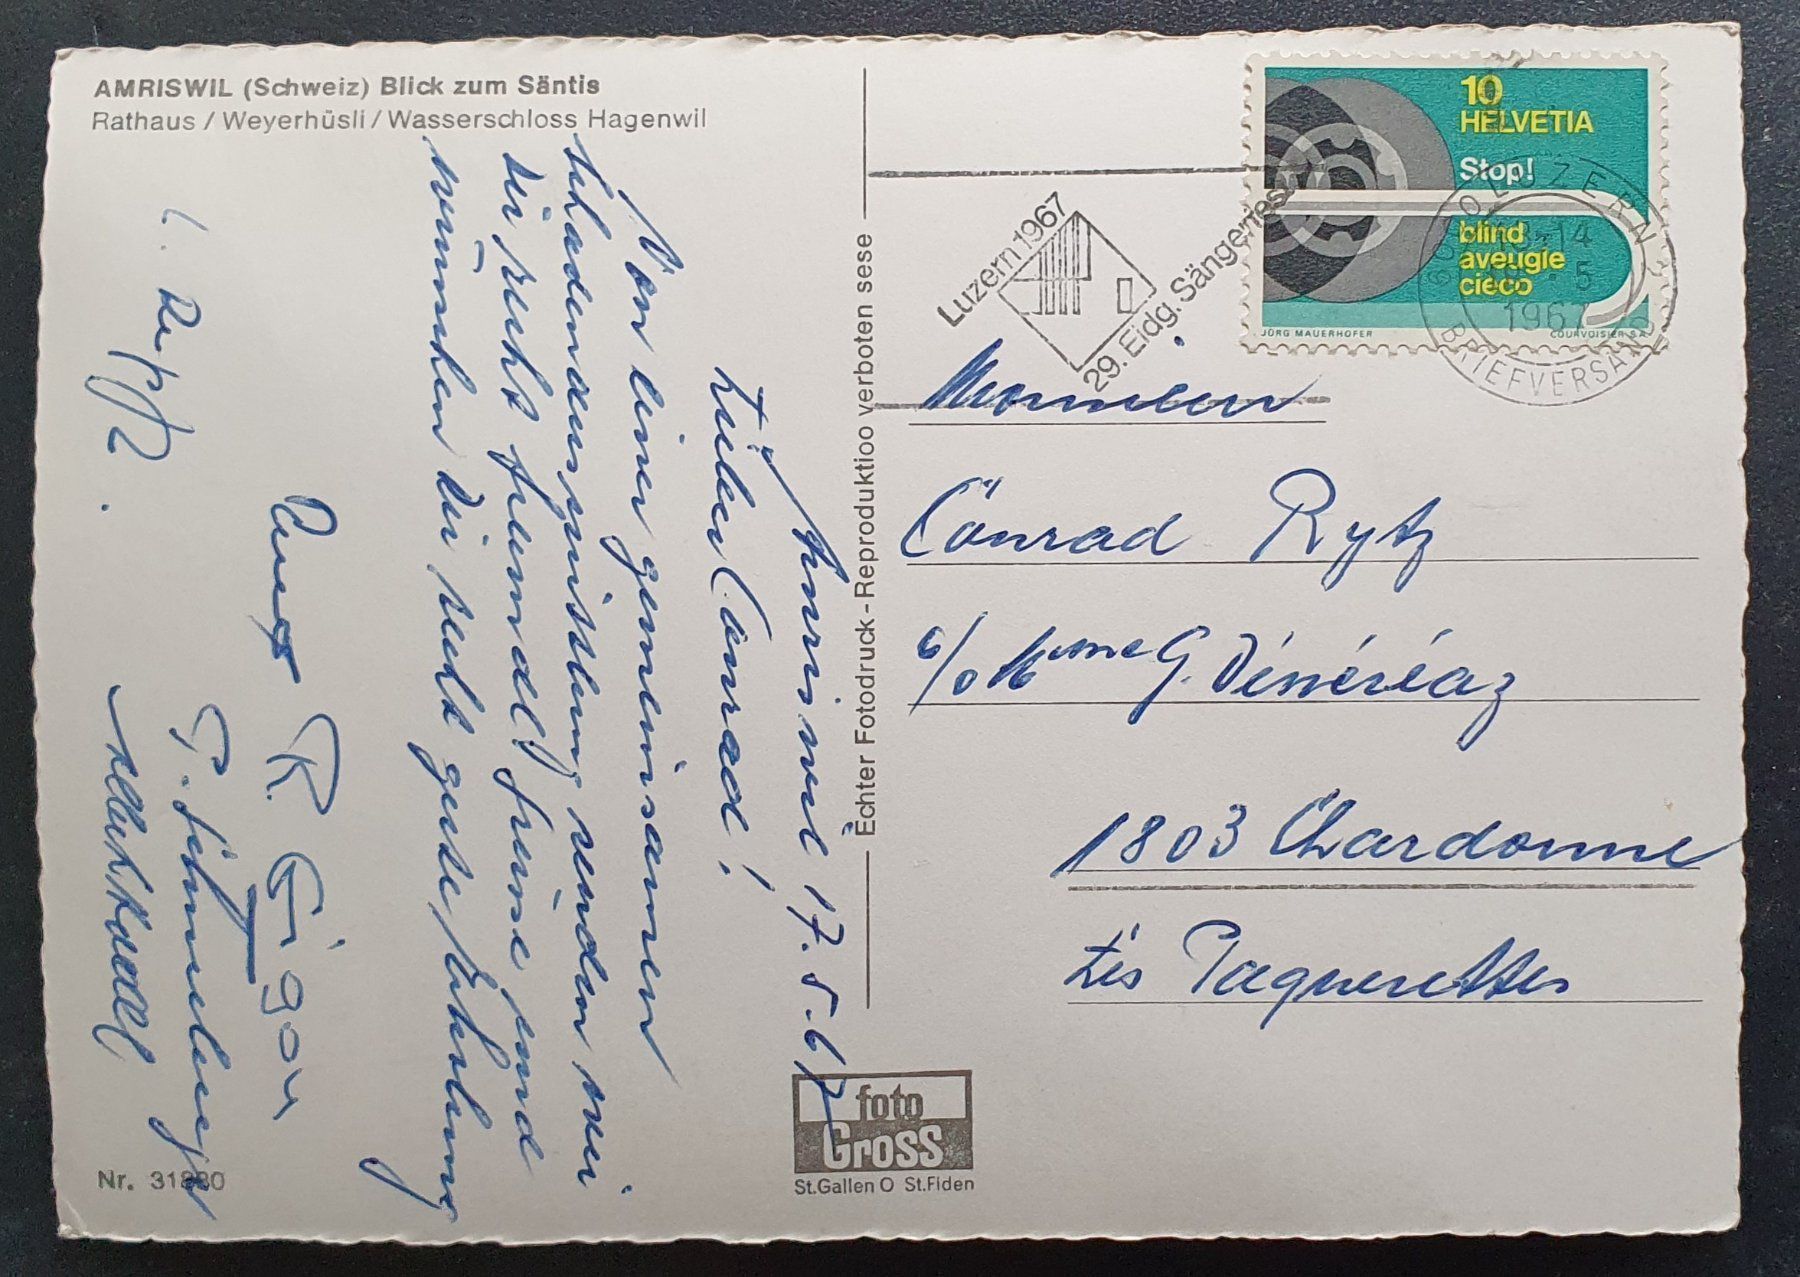 AMRISWIL (Schweiz) Blick zum Säntis
Rathaus / Weyerhüsli / Wasserschloss Hagenwil
Amriswil 17.5.67
Lieber Conrad!
Von einer gemeinsamen
Schadenausmittlung senden wir
Dir recht freundl. Grüsse und
wünschen Dir recht gute Erholung
R. Eigen
Albert
Nr. 31880
Echter Fotodruck - Reproduktioo verboten sese
foto
Gross
St.Gallen O St.Fiden
Luzern 1967
29. Eidg. Sängerfest
10
HELVETIA
Stop!
blind
aveugle
cieco
JÜRG MAUERHOFER
COURVOISIER S.A.
6000 LUZERN 2
13-14
5
1967
BRIEFVERSAND
Monsieur
Conrad Rytz
c/o Mme G. Dénéréaz
1803 Chardonne
Les Paquerettes